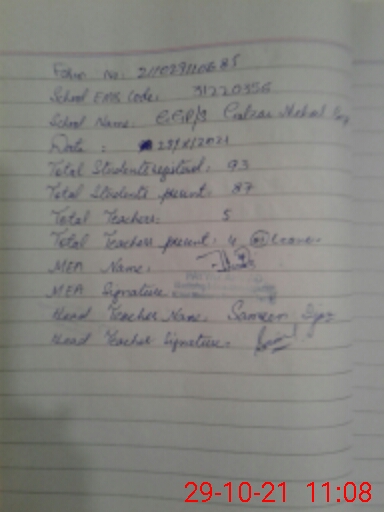 Form No: 211029110685
School EMIS Code: 31220356
School Name: GGP/S
Date: 29/X/2021
Total Students registered: 93
Total Students present: 87
Total Teachers: 5
Total Teachers present: 4 01 leave
MEA Name:
MEA Signature
Head Teacher Name:
Head Teacher Signature.
29-10-21 11:08